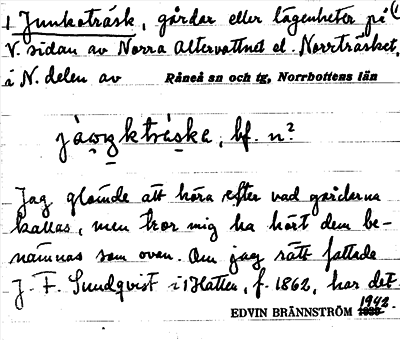 1 Junkoträsk, gårdar eller lägenheter på
V. sidan av Norra Altervattnet el. Norrträsket,
i N. delen av Råneå sn och tg, Norrbottens län
bf. n?
Jag glömde att höra efter vad gårdarna
kallas, men tror mig ha hört dem be-
nämnas som ovan. Om jag rätt fattade
J. F. Sundqvist i Hatten, f. 1862, har det
EDVIN BRÄNNSTRÖM 1942.